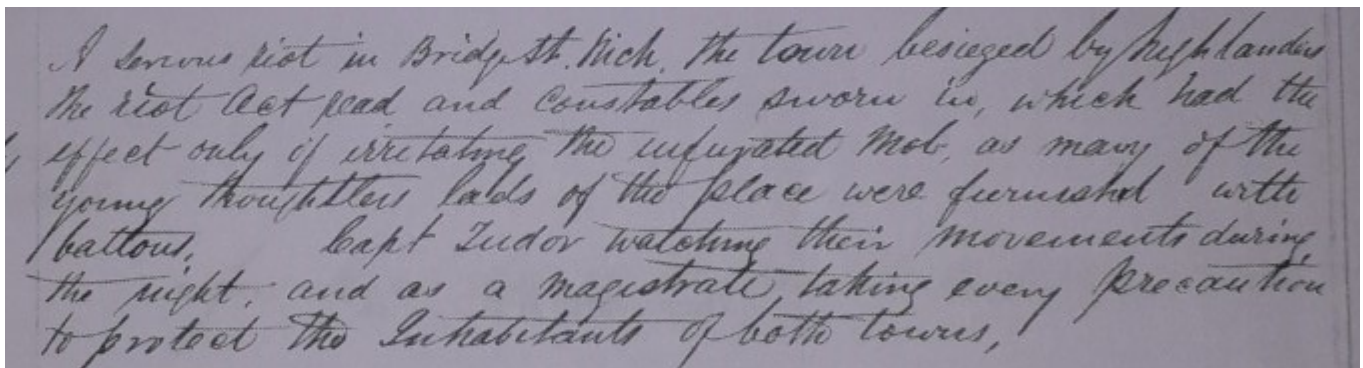 A serious riot in Bridge St. Rich. the town besieged by highlanders
the riot Act read and constables sworn in, which had the
effect only of irretating the infurated Mob, as many of the
young thoughtless lads of the place were furnished with
battons, Capt Tudor watching their movements during
the night, and as a magistrate, taking every precaution
to protect the Inhabitants of both towns,